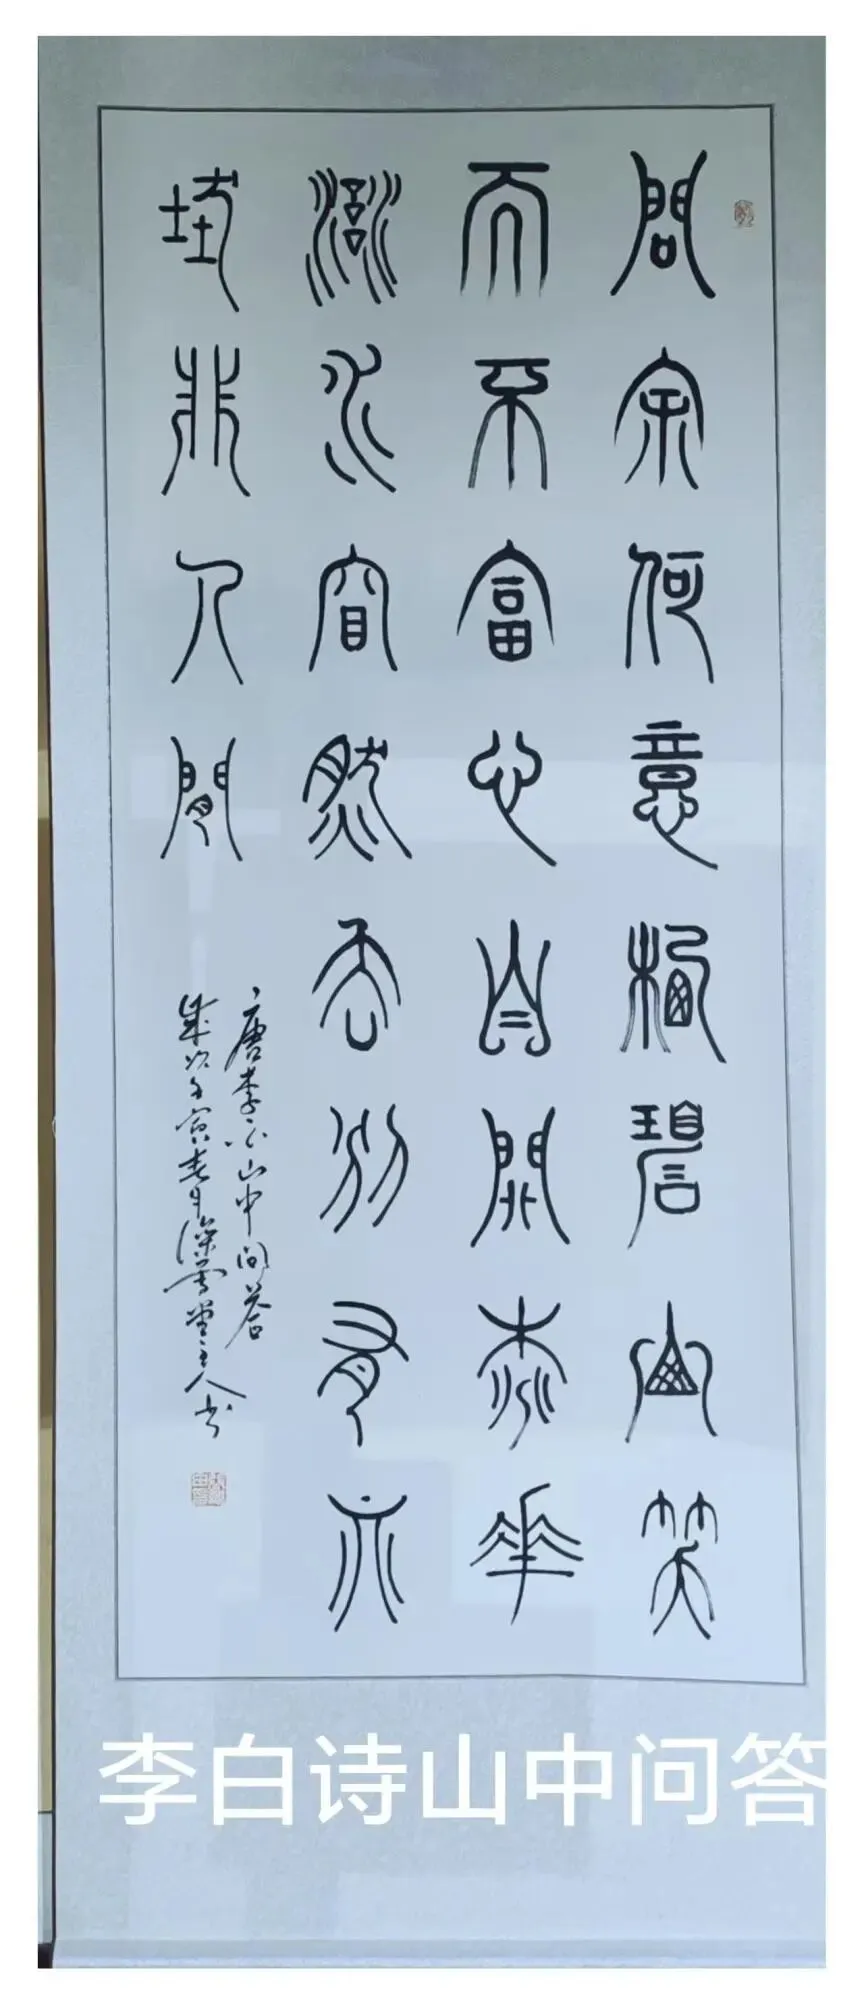 問余何意栖碧山笑
而不畣心自閑桃華
流水窅然去別有天
地非人間
唐李白山中问答
歲次壬寅春月深雪堂主人书
李白诗山中问答